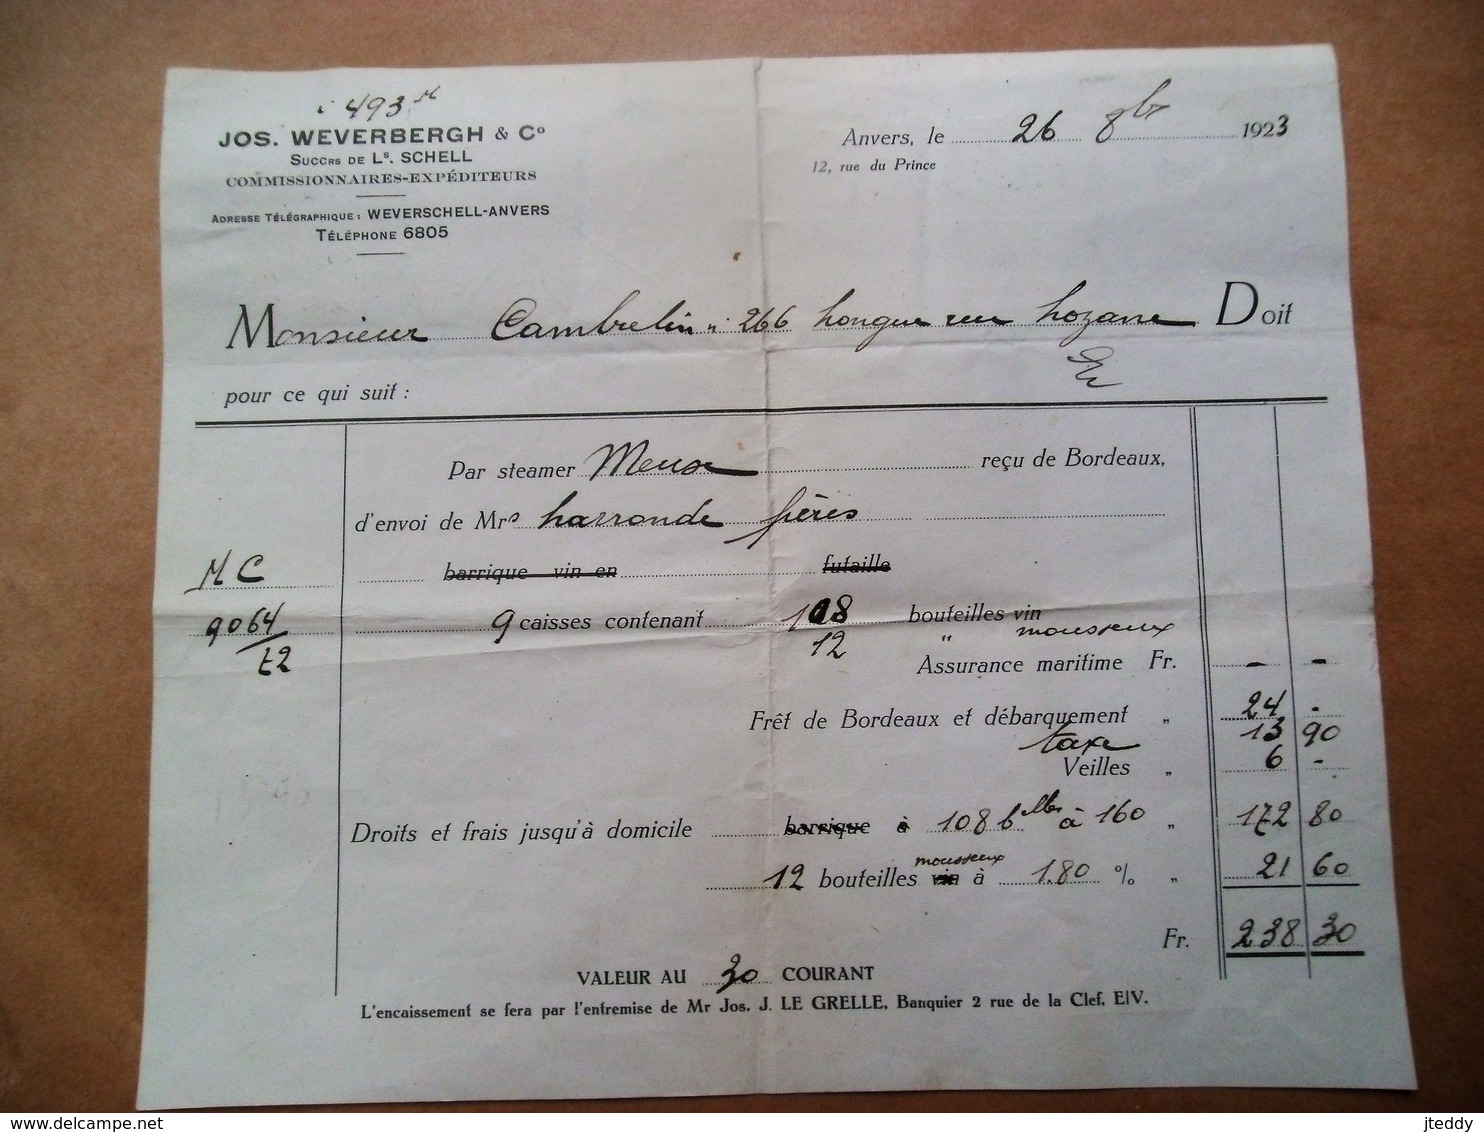 i 493
JOS. WEVERBERGH & Cº
SUCCRS DE Lˢ. SCHELL
COMMISSIONNAIRES-EXPÉDITEURS
ADRESSE TÉLÉGRAPHIQUE : WEVERSCHELL-ANVERS
TÉLÉPHONE 6805
Anvers, le 26 8bre 1923
12, rue du Prince
Monsieur Cambrelin 266 Longue rue Lozane Doit
pour ce qui suit :
Par steamer Meuse reçu de Bordeaux,
d'envoi de Mrs Larronde frères
MC barrique vin en futaille
9064/72 9 caisses contenant 108 bouteilles vin
12 " mousseux
Assurance maritime Fr. - -
Frêt de Bordeaux et débarquement " 24 -
taxe 13 90
Veilles " 6 -
Droits et frais jusqu'à domicile barrique à 108 blles à 160 " 172 80
12 bouteilles vin mousseux à 1.80 % " 21 60
Fr. 238 30
VALEUR AU 30 COURANT
L'encaissement se fera par l'entremise de Mr Jos. J. LE GRELLE, Banquier 2 rue de la Clef, E/V.
delcampe.net
jteddy